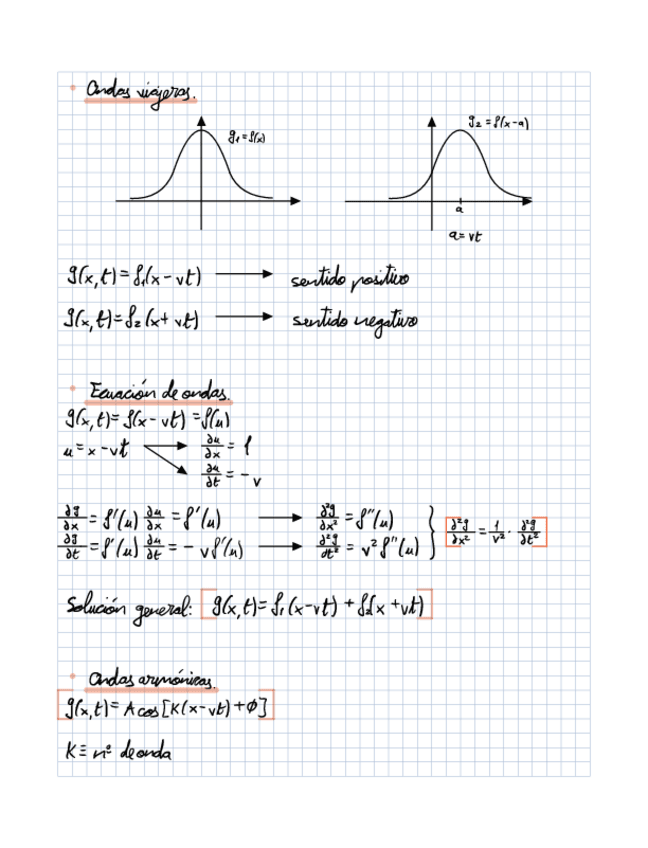 • Ondas viajeras.
g₁ = f(x)
g₂ = f(x-a)
a
a = vt
g(x,t) = f₁(x - vt) → sentido positivo
g(x,t) = f₂(x + vt) → sentido negativo
• Ecuación de ondas.
g(x,t) = f(x - vt) = f(u)
u = x - vt → ∂u/∂x = 1
→ ∂u/∂t = -v
∂g/∂x = f'(u) ∂u/∂x = f'(u) → ∂²g/∂x² = f''(u)
∂g/∂t = f'(u) ∂u/∂t = - v f'(u) → ∂²g/∂t² = v² f''(u) } ∂²g/∂x² = 1/v² · ∂²g/∂t²
Solución general: g(x,t) = f₁(x-vt) + f₂(x+vt)
• Ondas armónicas.
g(x,t) = A cos [K(x-vt) + ϕ]
K ≡ nº de onda